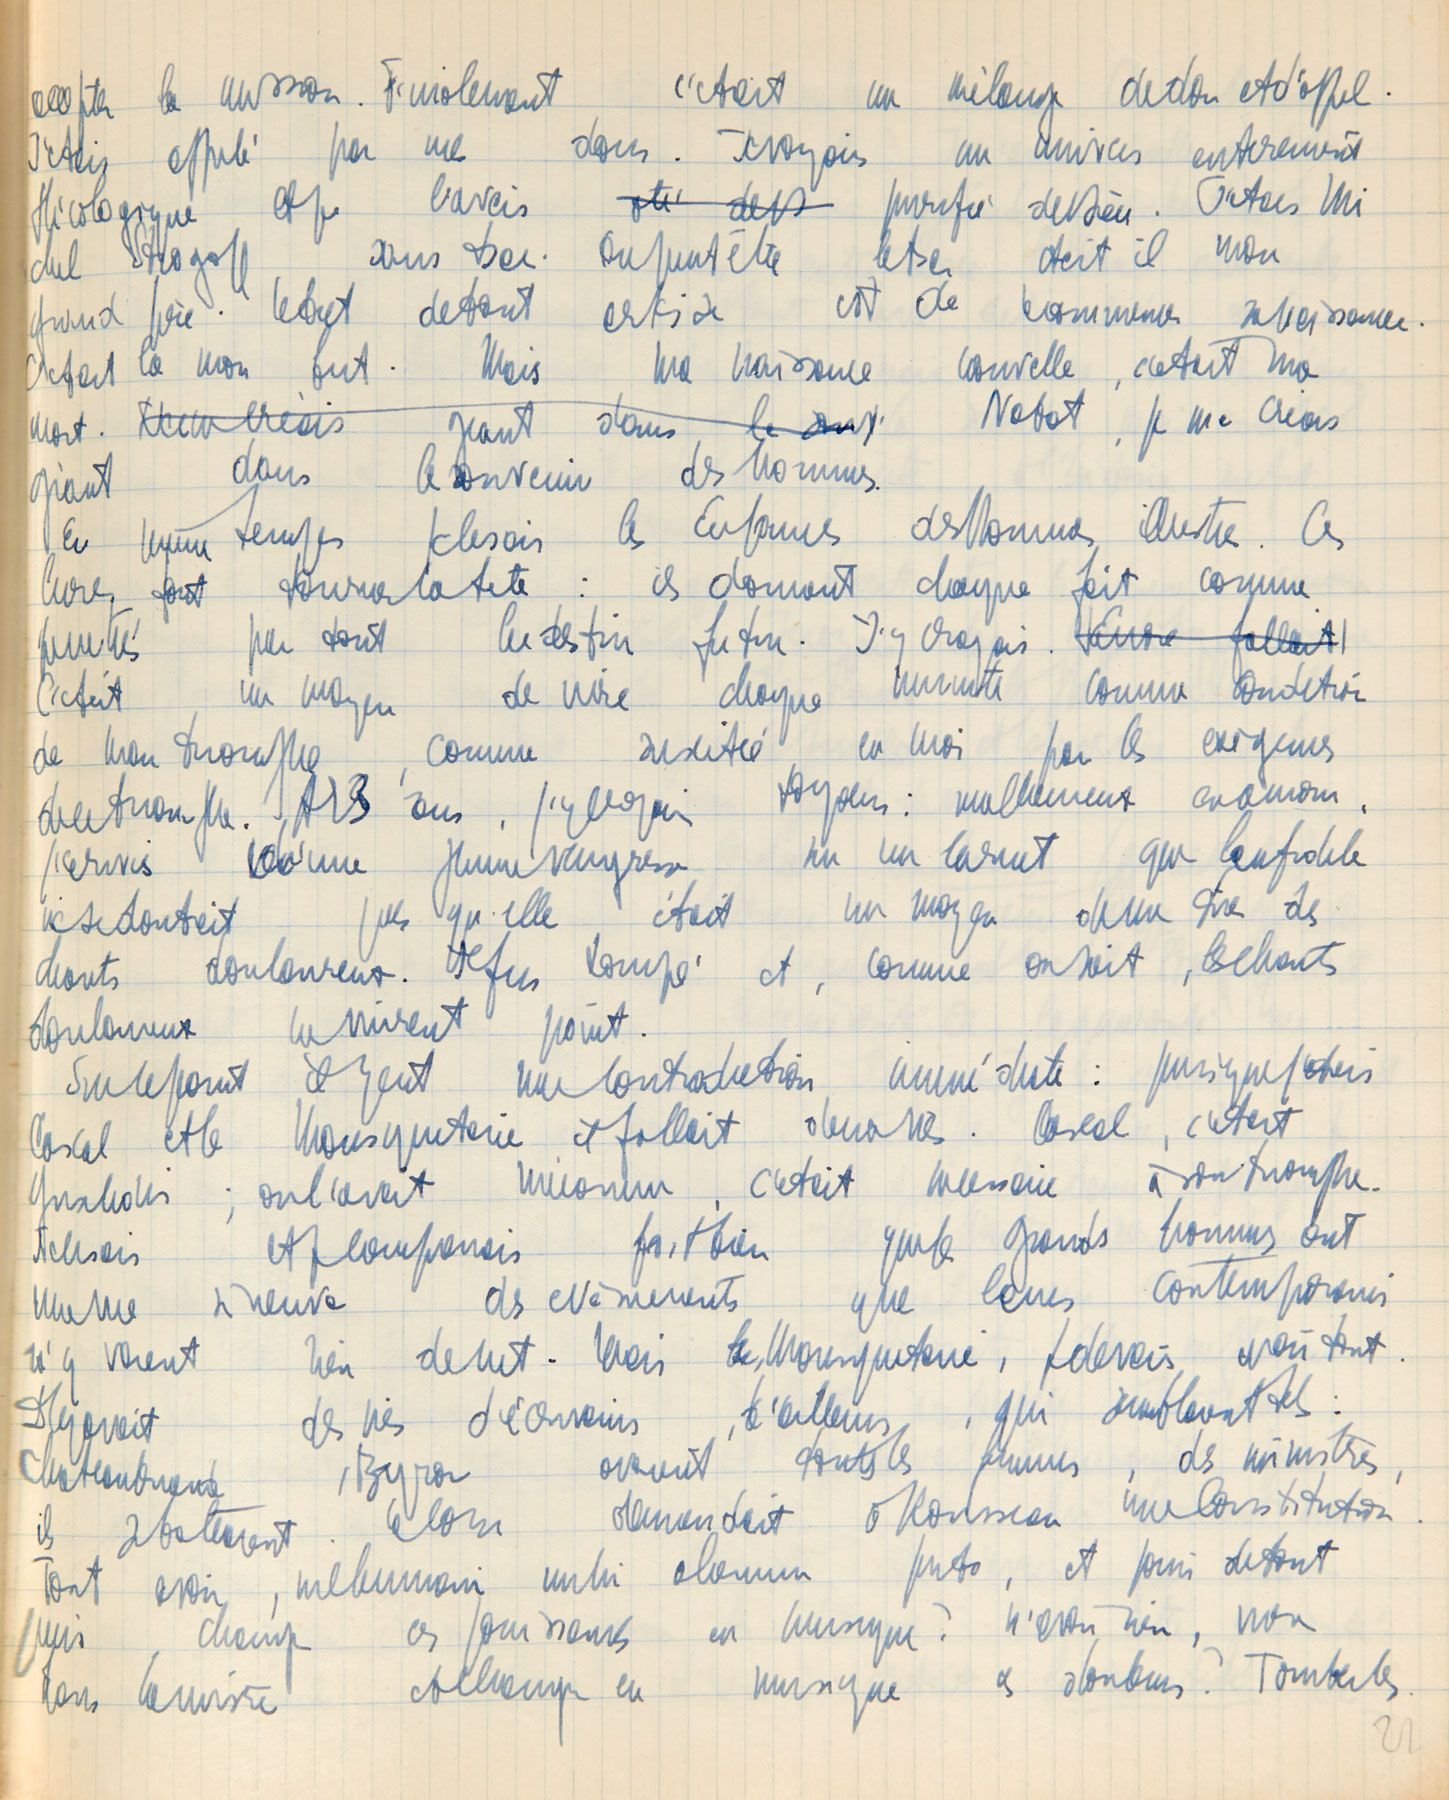 accepter la mission. Finalement c'était un mélange de don et d'appel.
J'étais appelé par mes dons. Je voyais un univers entièrement
théologique et je l'avais ôté de purifié de Dieu. J'étais Mi
chel Strogoff sans tsar. Ou peut-être le tsar était il mon
grand père. Le but de tout est de
C'était là mon but. Mais ma naissance nouvelle, c'était ma
mort. géant dans Nabot, je me créais
géant dans le souvenir des hommes.
En même temps je lisais les Enfances des Hommes illustres. Ces
livres font tourner la tête : ils donnent chaque fait comme
par tout le destin futur. J'y croyais. fallait
C'était un moyen de vivre chaque minute comme condition
de mon triomphe, comme suscitée en moi par les exigences
de ce triomphe. A 23 ans, j'y croyais toujours : malheureux en amour,
j'écrivis d'une jeune sur un carnet que l'infidèle
ne se doutait pas qu'elle était un moyen de me tirer des
chants douloureux. Je fus trompé et, comme on sait, les chants
douloureux ne vinrent point.
Sur ce point il y eut une contradiction immédiate : puisque j'étais
et le Mousquetaire il fallait
; on l'avait méconnu, c'était nécessaire à son triomphe.
Je lisais et je comprenais fort bien que les grands hommes ont
des événements que leurs contemporains
n'y voient rien du tout. Mais le Mousquetaire, je devais avoir tout.
Il y avait des vies d'écrivains, d'ailleurs, qui semblaient telles :
Chateaubriand, Byron avaient toutes les femmes, des ministres,
ils se battaient. La Corse demandait à Rousseau une Constitution.
Tout avoir, et jouir de tout
puis, changer ces jouissances en musique ? N'avoir rien, non
dans la misère et changer en musique ces douleurs ? Tomber les
21